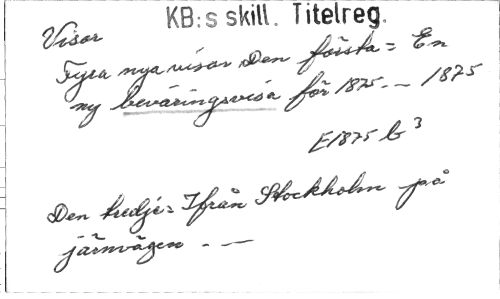 KB:s skill. Titelreg.
Visor
Fyra nya visor Den första = En
ny beväringsvisa för 1875. — 1875
E1875 b 3
Den tredje = Ifrån Stockholm på
järnvägen . —